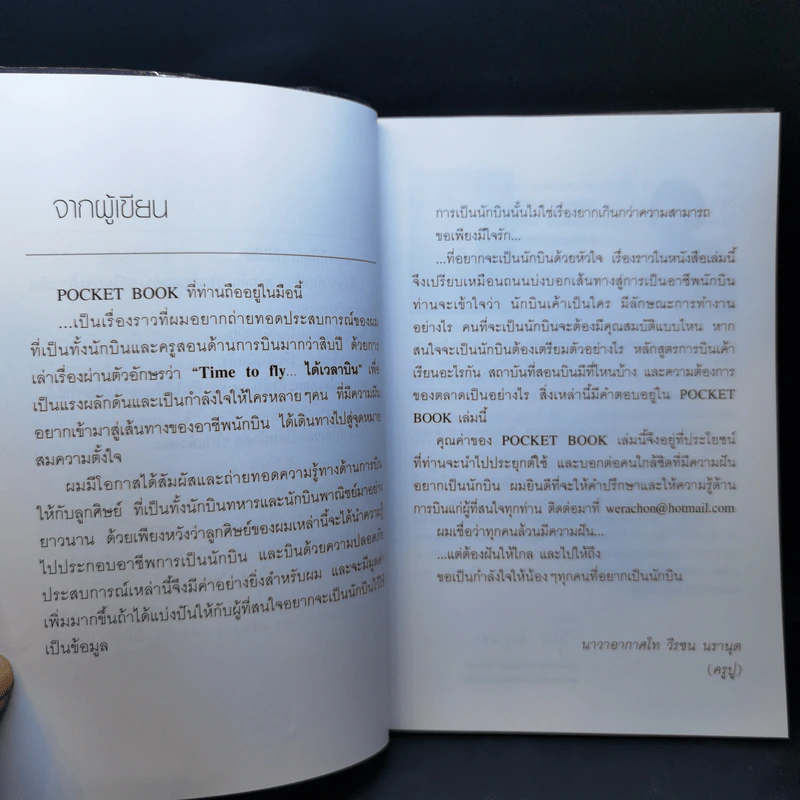 จากผู้เขียน
POCKET BOOK ที่ท่านถืออยู่ในมือนี้
...เป็นเรื่องราวที่ผมอยากถ่ายทอดประสบการณ์ของผม
ที่เป็นทั้งนักบินและครูสอนด้านการบินมากว่าสิบปี ด้วยการ
เล่าเรื่องผ่านตัวอักษรว่า “Time to fly... ได้เวลาบิน” เพื่อ
เป็นแรงผลักดันและเป็นกำลังใจให้ใครหลายๆคน ที่มีความฝัน
อยากเข้ามาสู่เส้นทางของอาชีพนักบิน ได้เดินทางไปสู่จุดหมาย
สมความตั้งใจ
ผมมีโอกาสได้สัมผัสและถ่ายทอดความรู้ทางด้านการบิน
ให้กับลูกศิษย์ ที่เป็นทั้งนักบินทหารและนักบินพาณิชย์มาอย่าง
ยาวนาน ด้วยเพียงหวังว่าลูกศิษย์ของผมเหล่านี้จะได้นำความรู้
ไปประกอบอาชีพการเป็นนักบิน และบินด้วยความปลอดภัย
ประสบการณ์เหล่านี้จึงมีค่าอย่างยิ่งสำหรับผม และจะมีมูลค่า
เพิ่มมากขึ้นถ้าได้แบ่งปันให้กับผู้ที่สนใจอยากจะเป็นนักบินไว้ใช้
เป็นข้อมูล
การเป็นนักบินนั้นไม่ใช่เรื่องยากเกินกว่าความสามารถ
ขอเพียงมีใจรัก...
...ที่อยากจะเป็นนักบินด้วยหัวใจ เรื่องราวในหนังสือเล่มนี้
จึงเปรียบเหมือนถนนบ่งบอกเส้นทางสู่การเป็นอาชีพนักบิน
ท่านจะเข้าใจว่า นักบินเค้าเป็นใคร มีลักษณะการทำงาน
อย่างไร คนที่จะเป็นนักบินจะต้องมีคุณสมบัติแบบไหน หาก
สนใจจะเป็นนักบินต้องเตรียมตัวอย่างไร หลักสูตรการบินเค้า
เรียนอะไรกัน สถาบันที่สอนบินมีที่ไหนบ้าง และความต้องการ
ของตลาดเป็นอย่างไร สิ่งเหล่านี้มีคำตอบอยู่ใน POCKET
BOOK เล่มนี้
คุณค่าของ POCKET BOOK เล่มนี้จึงอยู่ที่ประโยชน์
ที่ท่านจะนำไปประยุกต์ใช้ และบอกต่อคนใกล้ชิดที่มีความฝัน
อยากเป็นนักบิน ผมยินดีที่จะให้คำปรึกษาและให้ความรู้ด้าน
การบินแก่ผู้ที่สนใจทุกท่าน ติดต่อมาที่ werachon@hotmail.com
ผมเชื่อว่าทุกคนล้วนมีความฝัน...
...แต่ต้องฝันให้ไกล และไปให้ถึง
ขอเป็นกำลังใจให้น้องๆทุกคนที่อยากเป็นนักบิน
นาวาอากาศโท วีรชน นรานุต
(ครูปู)